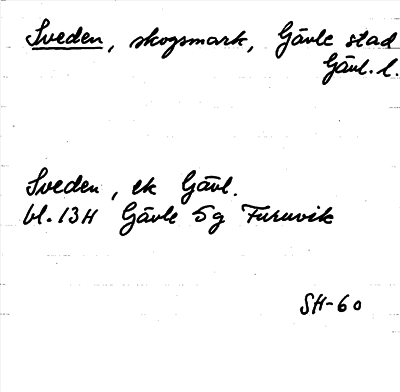 Sveden, skogsmark, Gävle stad
Gävl. l.
Sveden, ek Gävl.
bl. 13H Gävle 5g Furuvik
SH-60